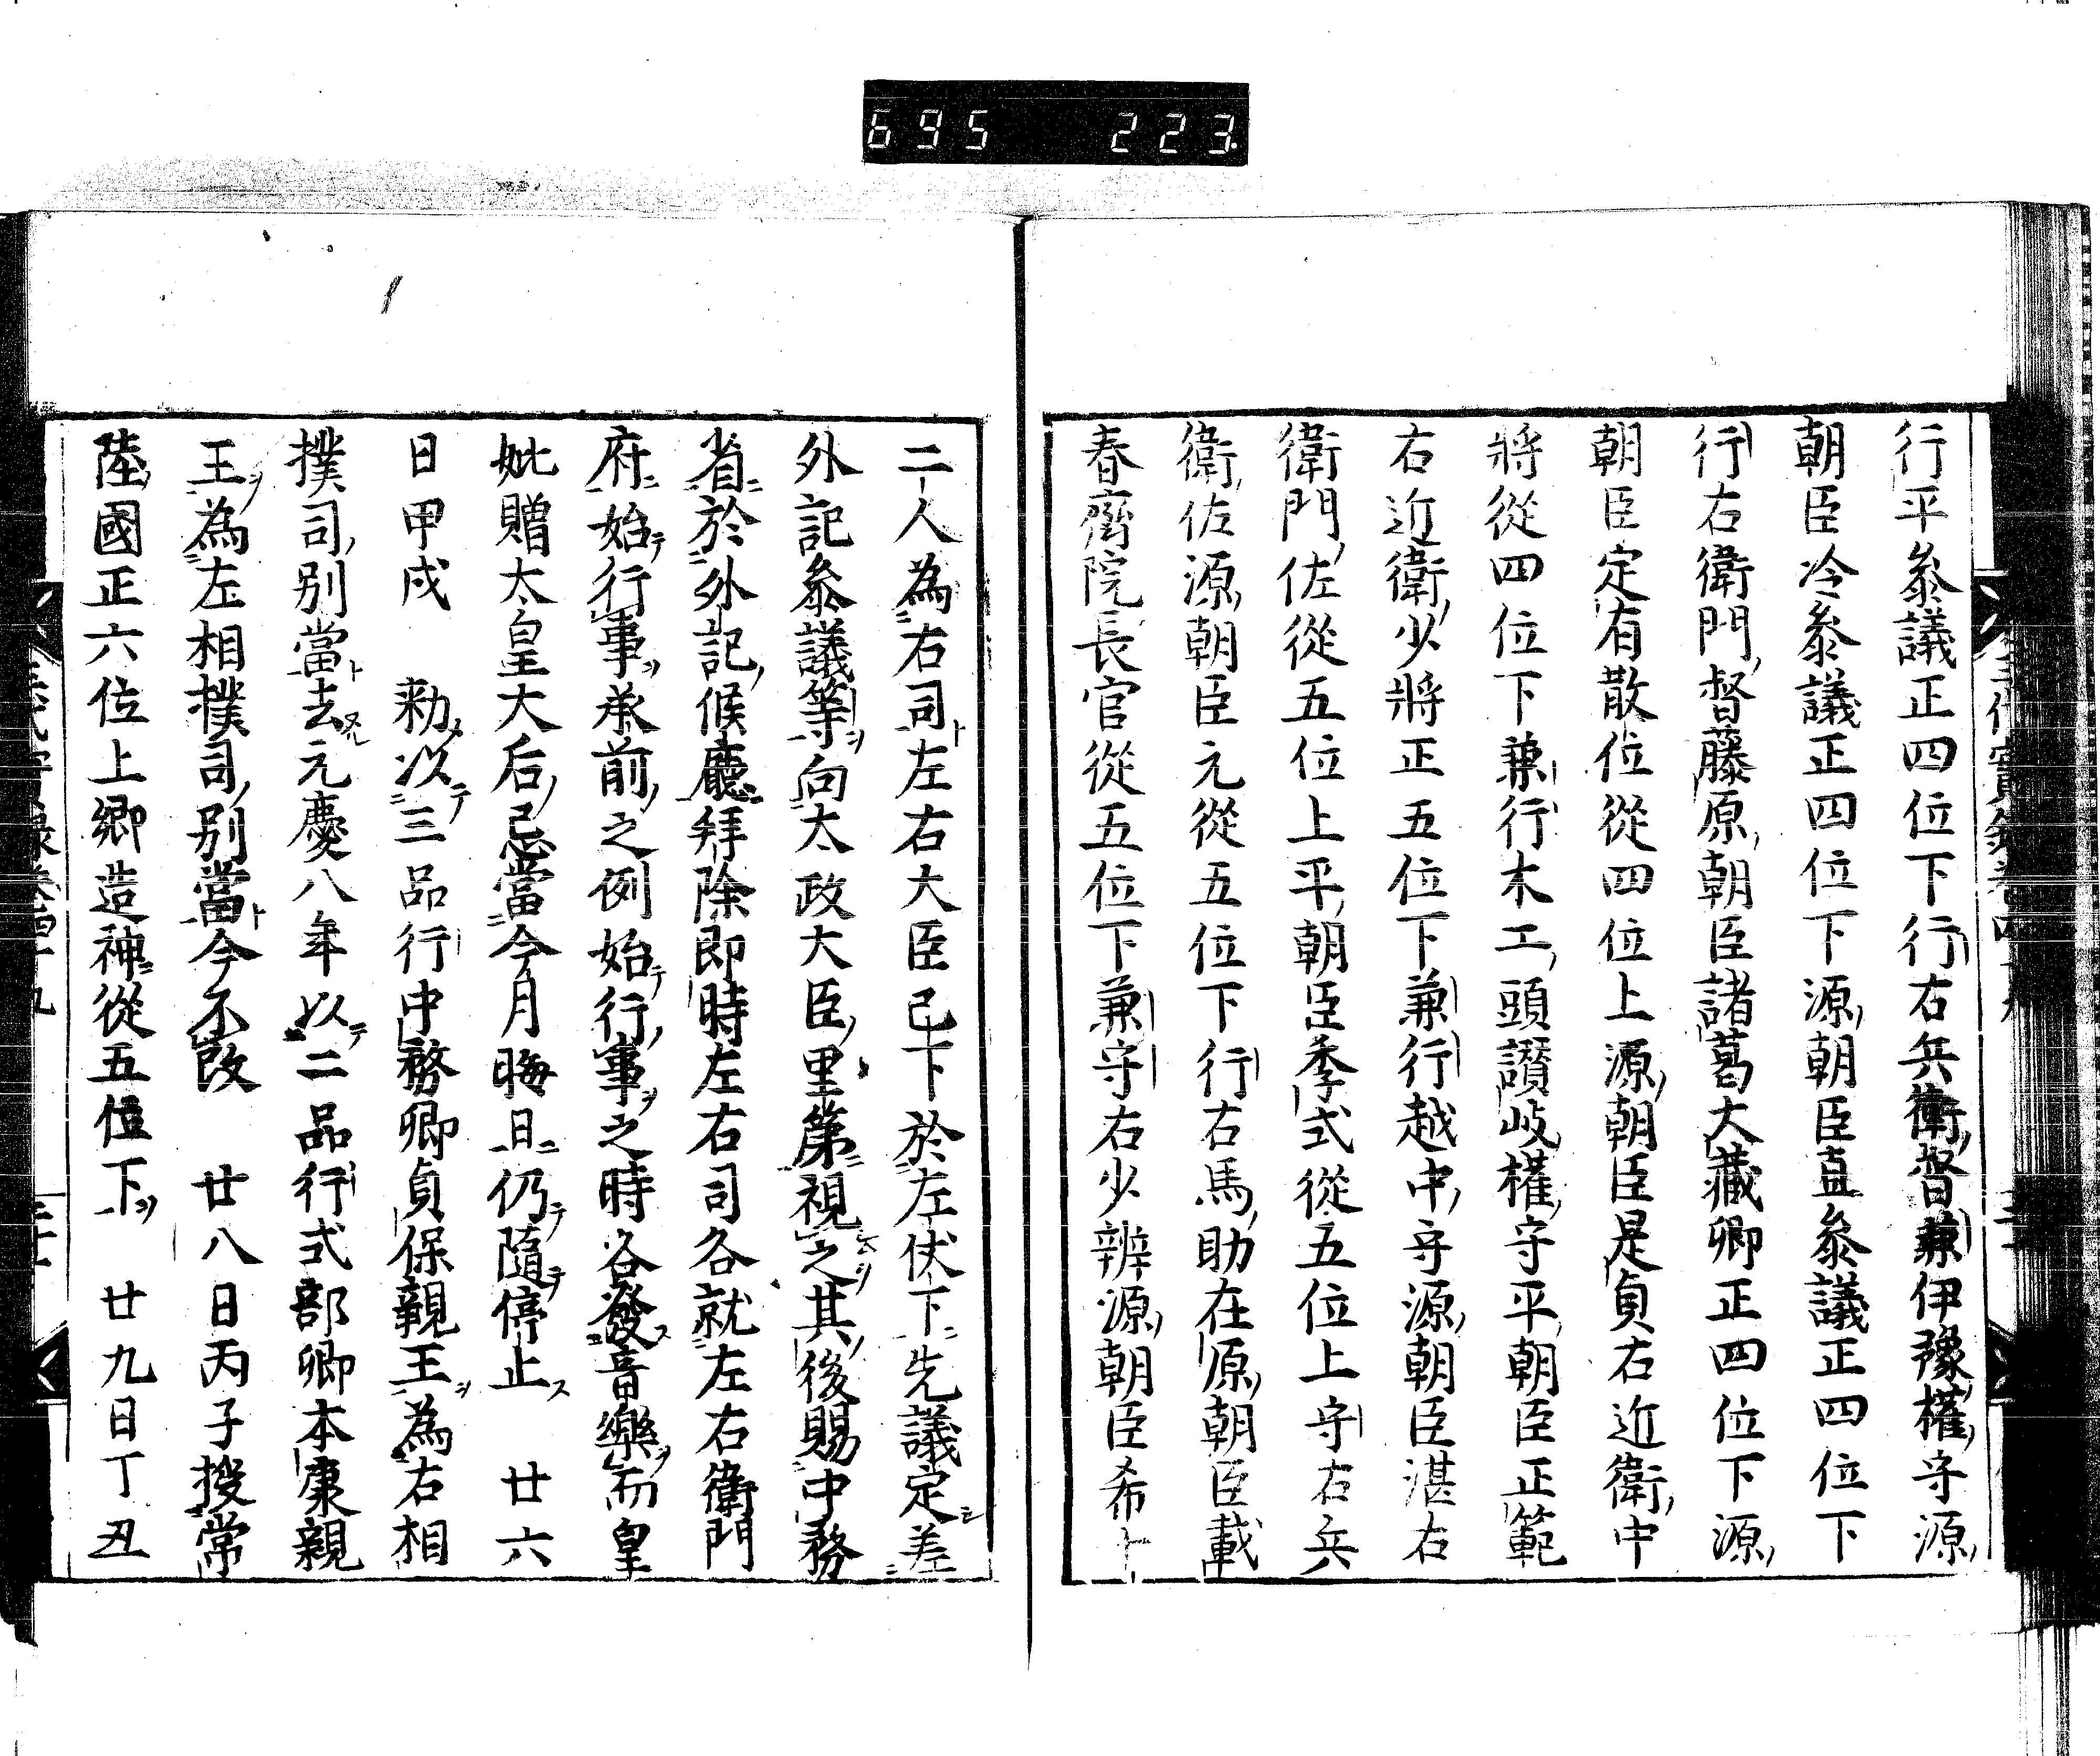 695 223
行平叅議正四位下行右兵衛督兼伊豫權守源
朝臣冷叅議正四位下源朝臣直叅議正四位下
行右衛門督藤原朝臣諸葛大藏卿正四位下源
朝臣定有散位從四位上源朝臣是貞右近衛中
將從四位下兼行木工頭讃岐權守平朝臣正範
右近衛少將正五位下兼行越中守源朝臣湛右
衛門佐從五位上平朝臣季式從五位上守右兵
衛佐源朝臣元從五位下行右馬助在原朝臣載
春齊院長官從五位下兼守右少辨源朝臣希十
二人為右司左右大臣已下於左伏下先議定差
外記叅議等向太政大臣里第視之其後賜中務
省於外記候廳拜除即時左右司各就左右衛門
府始行事承前之例始行事之時各發音樂而皇
妣贈太皇大后忌當今月晦日仍隨停止 廿六
日甲戌 勅以三品行中務卿貞保親王為右相
撲司別當去元慶八年以二品行式部卿本康親
王為左相撲司別當今不改 廿八日丙子授常
陸國正六位上鄉造神從五位下 廿九日丁丑